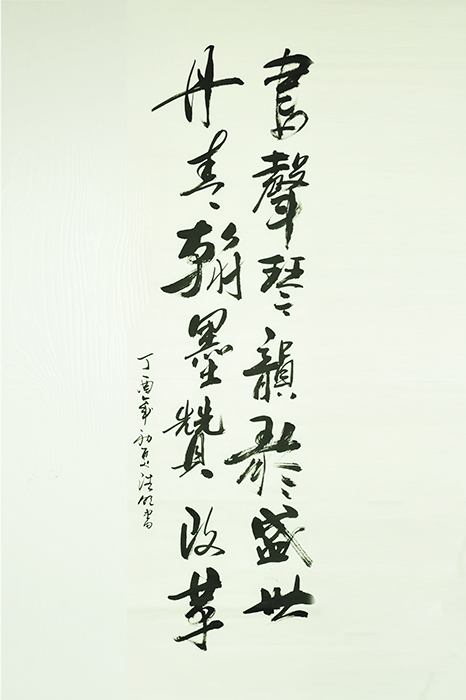 書聲琴韻盛世
丹青翰墨贊改革
丁酉年初夏浩書